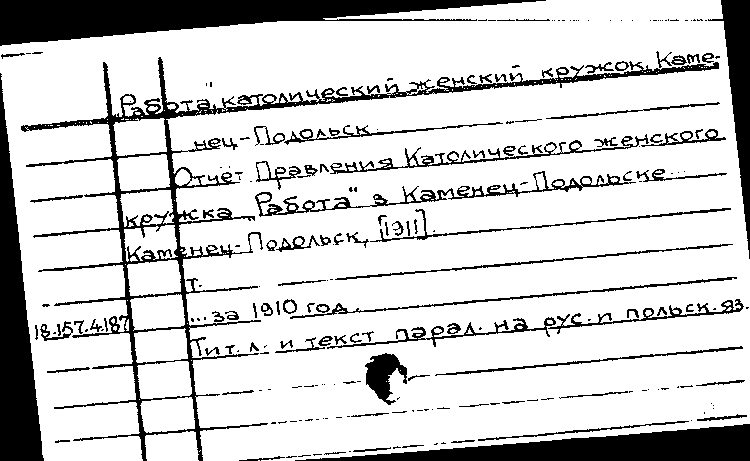 "Работа", католический женский кружок. Каме-
нец-Подольск
Отчёт Правления Католического женского
кружка „Работа" в Каменец-Подольске...
Каменец-Подольск, [1911].
т.
...за 1910 год.
18.157.4.187
Тит. л. и текст парал. на рус. и польск. яз.